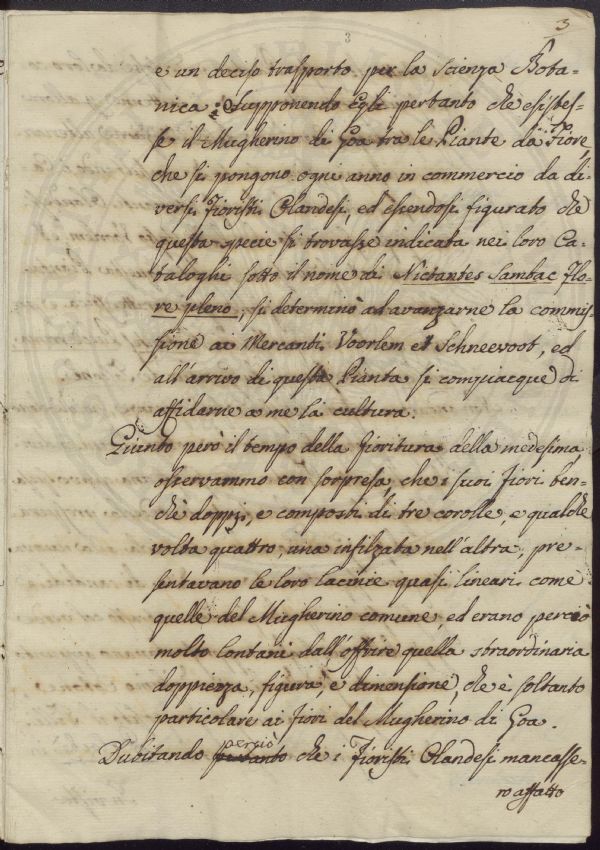 3
8
e un deciso trasporto per la scienza Bota-
nica: Supponendo Egli pertanto che esistes-
se il Mugherino di Goa tra le Piante da Fiore,
che si pongono ogni anno in commercio da di-
versi Fioristi Olandesi, ed essendosi figurato che
questa specie si trovasse indicata nei loro Ca-
taloghi sotto il nome di Nictantes Sambac Flo-
re pleno, si determinò ad avanzarne la commis-
sione ai Mercanti Voorlem et Schneevoot, ed
all'arrivo di questa Pianta si compiacque di
affidarne a me la cultura.
Giunto però il tempo della fioritura della medesima,
osservammo con sorpresa, che i suoi Fiori ben-
chè doppi, e composti di tre corolle, e qualche
volta quattro, una infilzata nell'altra, pre-
sentavano le loro lacinie quasi lineari come
quelle del Mugherino comune, ed erano perciò
molto lontani dall'offrire quella straordinaria
doppiezza, figura, e dimensione, che è soltanto
particolare ai fiori del Mugherino di Goa.
perciò
Dubitando pertanto che i Fioristi Olandesi mancasse-
ro affatto